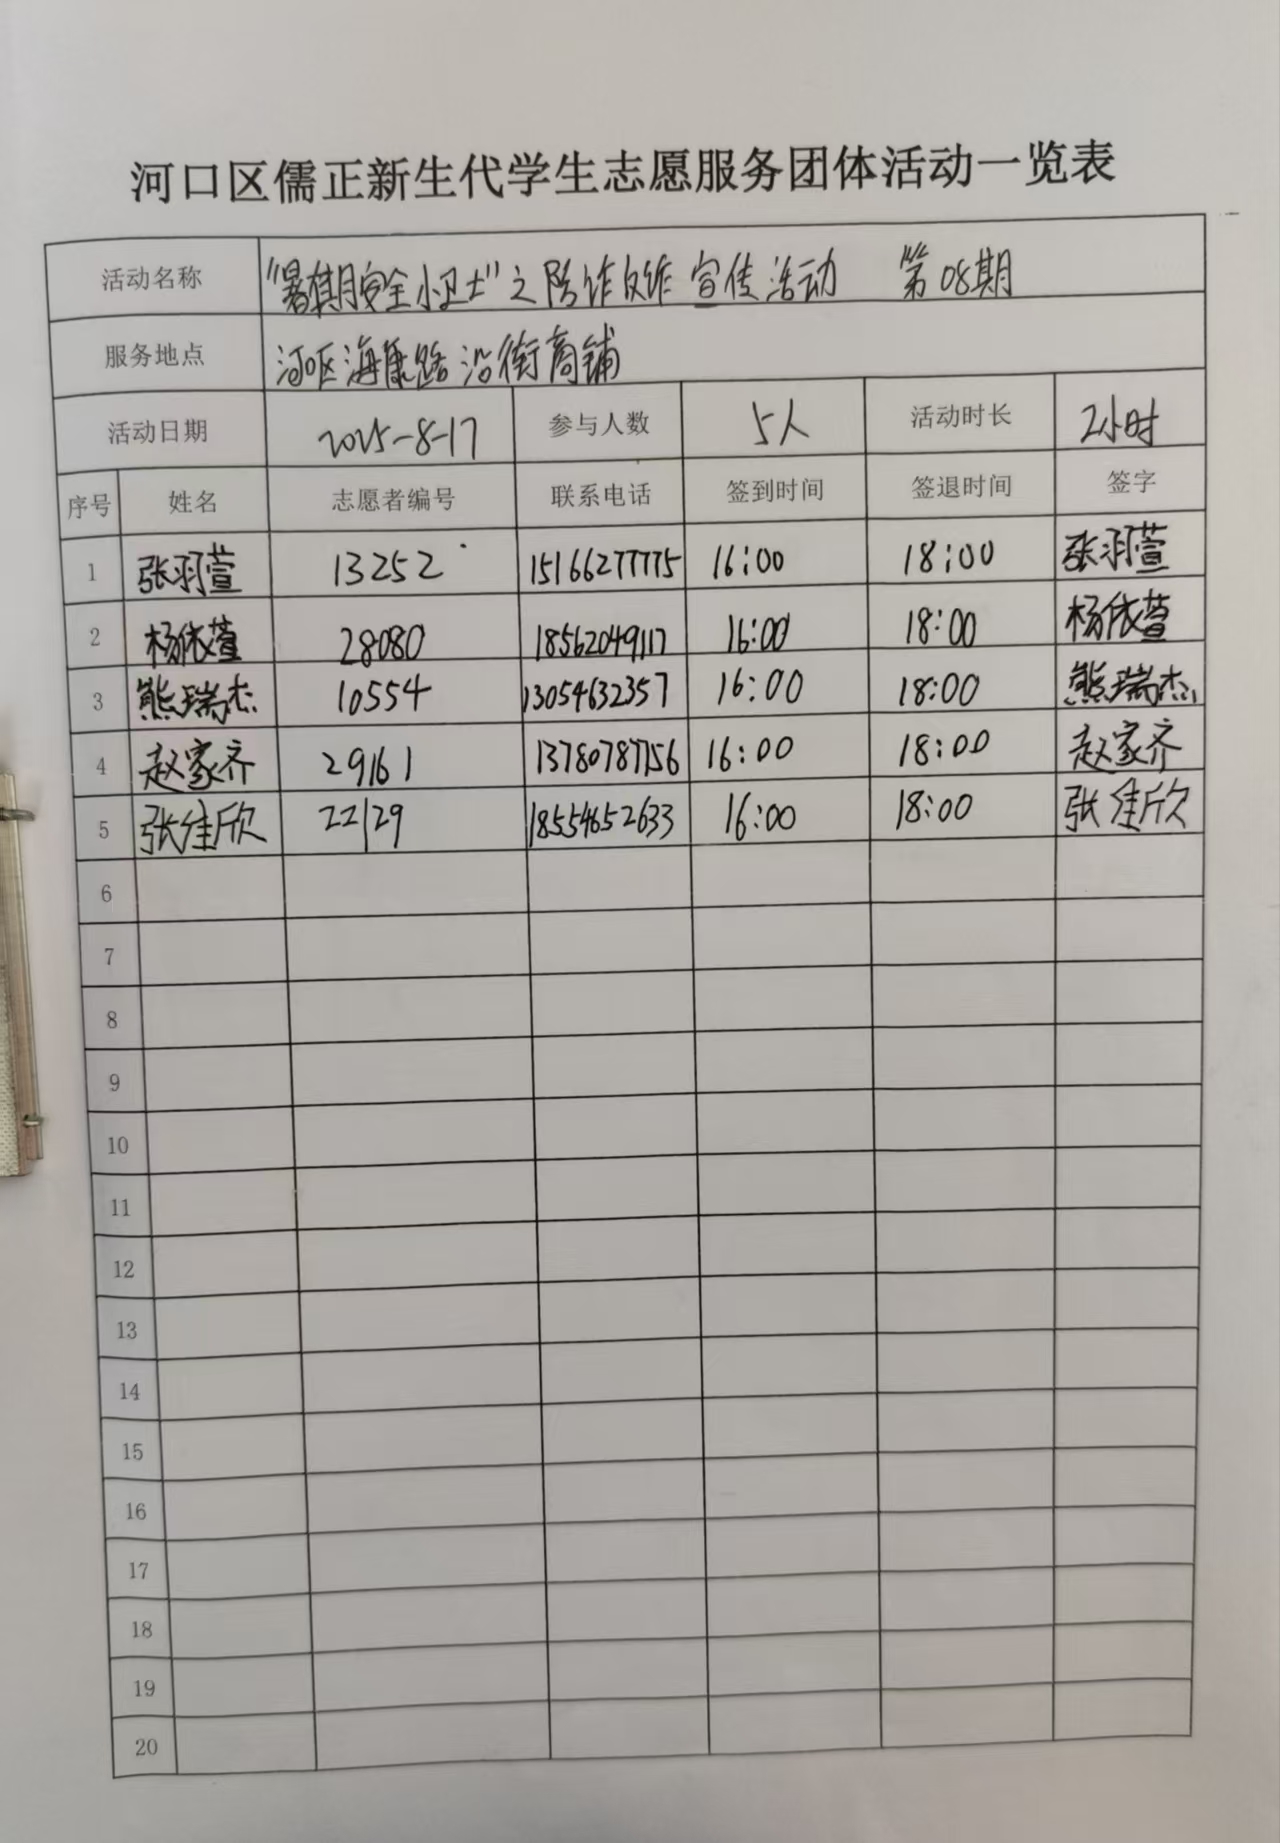 河口区儒正新生代学生志愿服务团体活动一览表
活动名称 "暑期安全小卫士"之防诈反诈宣传活动 第08期
服务地点 河口区海康路沿街商铺
活动日期 2025-8-17 参与人数 5人 活动时长 2小时
序号 姓名 志愿者编号 联系电话 签到时间 签退时间 签字
1 张羽萱 13252 15166277775 16:00 18:00 张羽萱
2 杨依萱 28080 18562049117 16:00 18:00 杨依萱
3 熊瑞杰 10554 13054632357 16:00 18:00 熊瑞杰
4 赵家齐 29161 13780787756 16:00 18:00 赵家齐
5 张佳欣 22129 18554652633 16:00 18:00 张佳欣
6
7
8
9
10
11
12
13
14
15
16
17
18
19
20